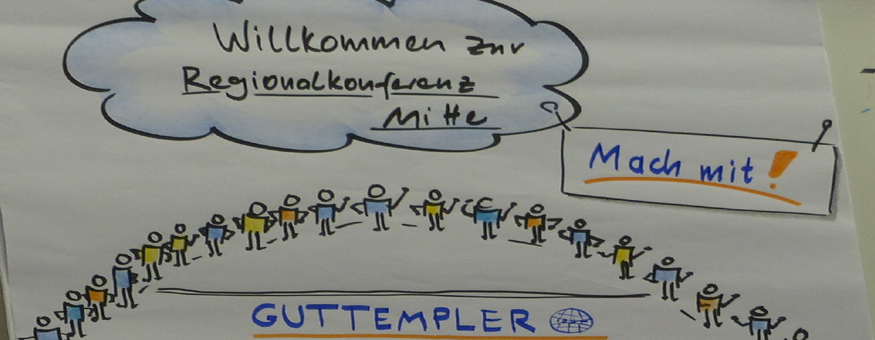 Willkommen zur
Regionalkonferenz
Mitte
Mach mit!
GUTTEMPLER